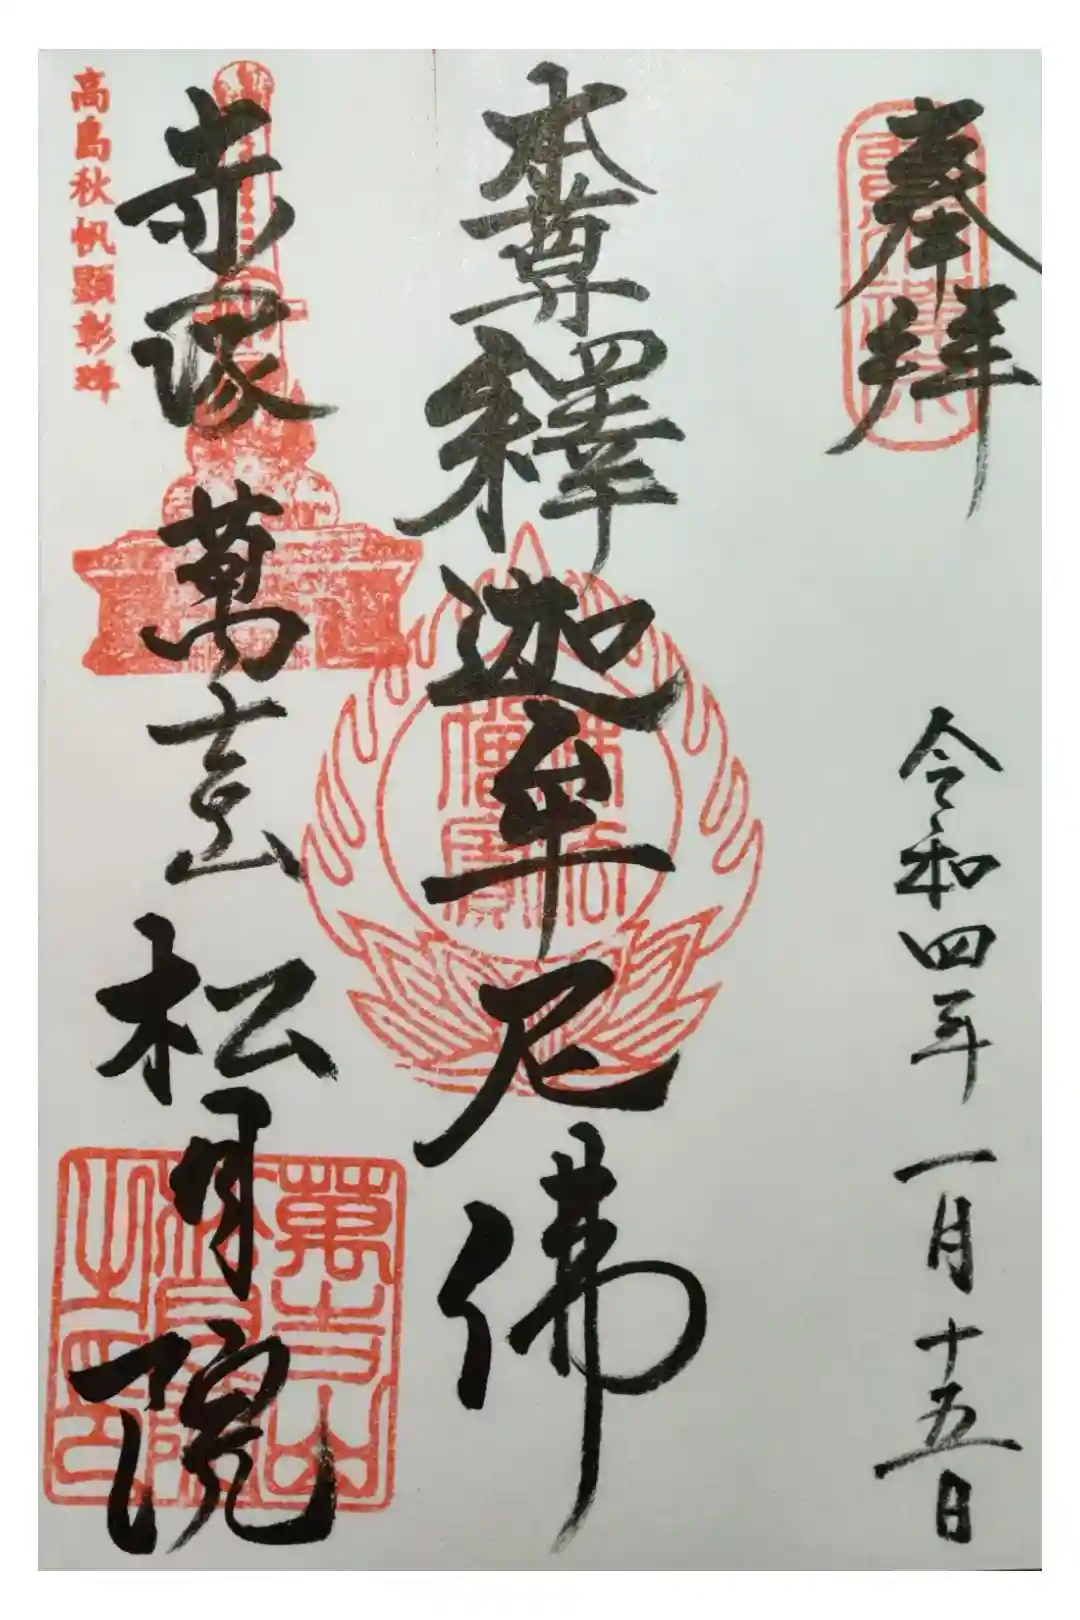 奉拝
令和四年一月十五日
本尊釋迦牟尼佛
赤塚萬吉山松月院
高島秋帆顕彰碑
佛法僧寳
萬吉山松月院之印